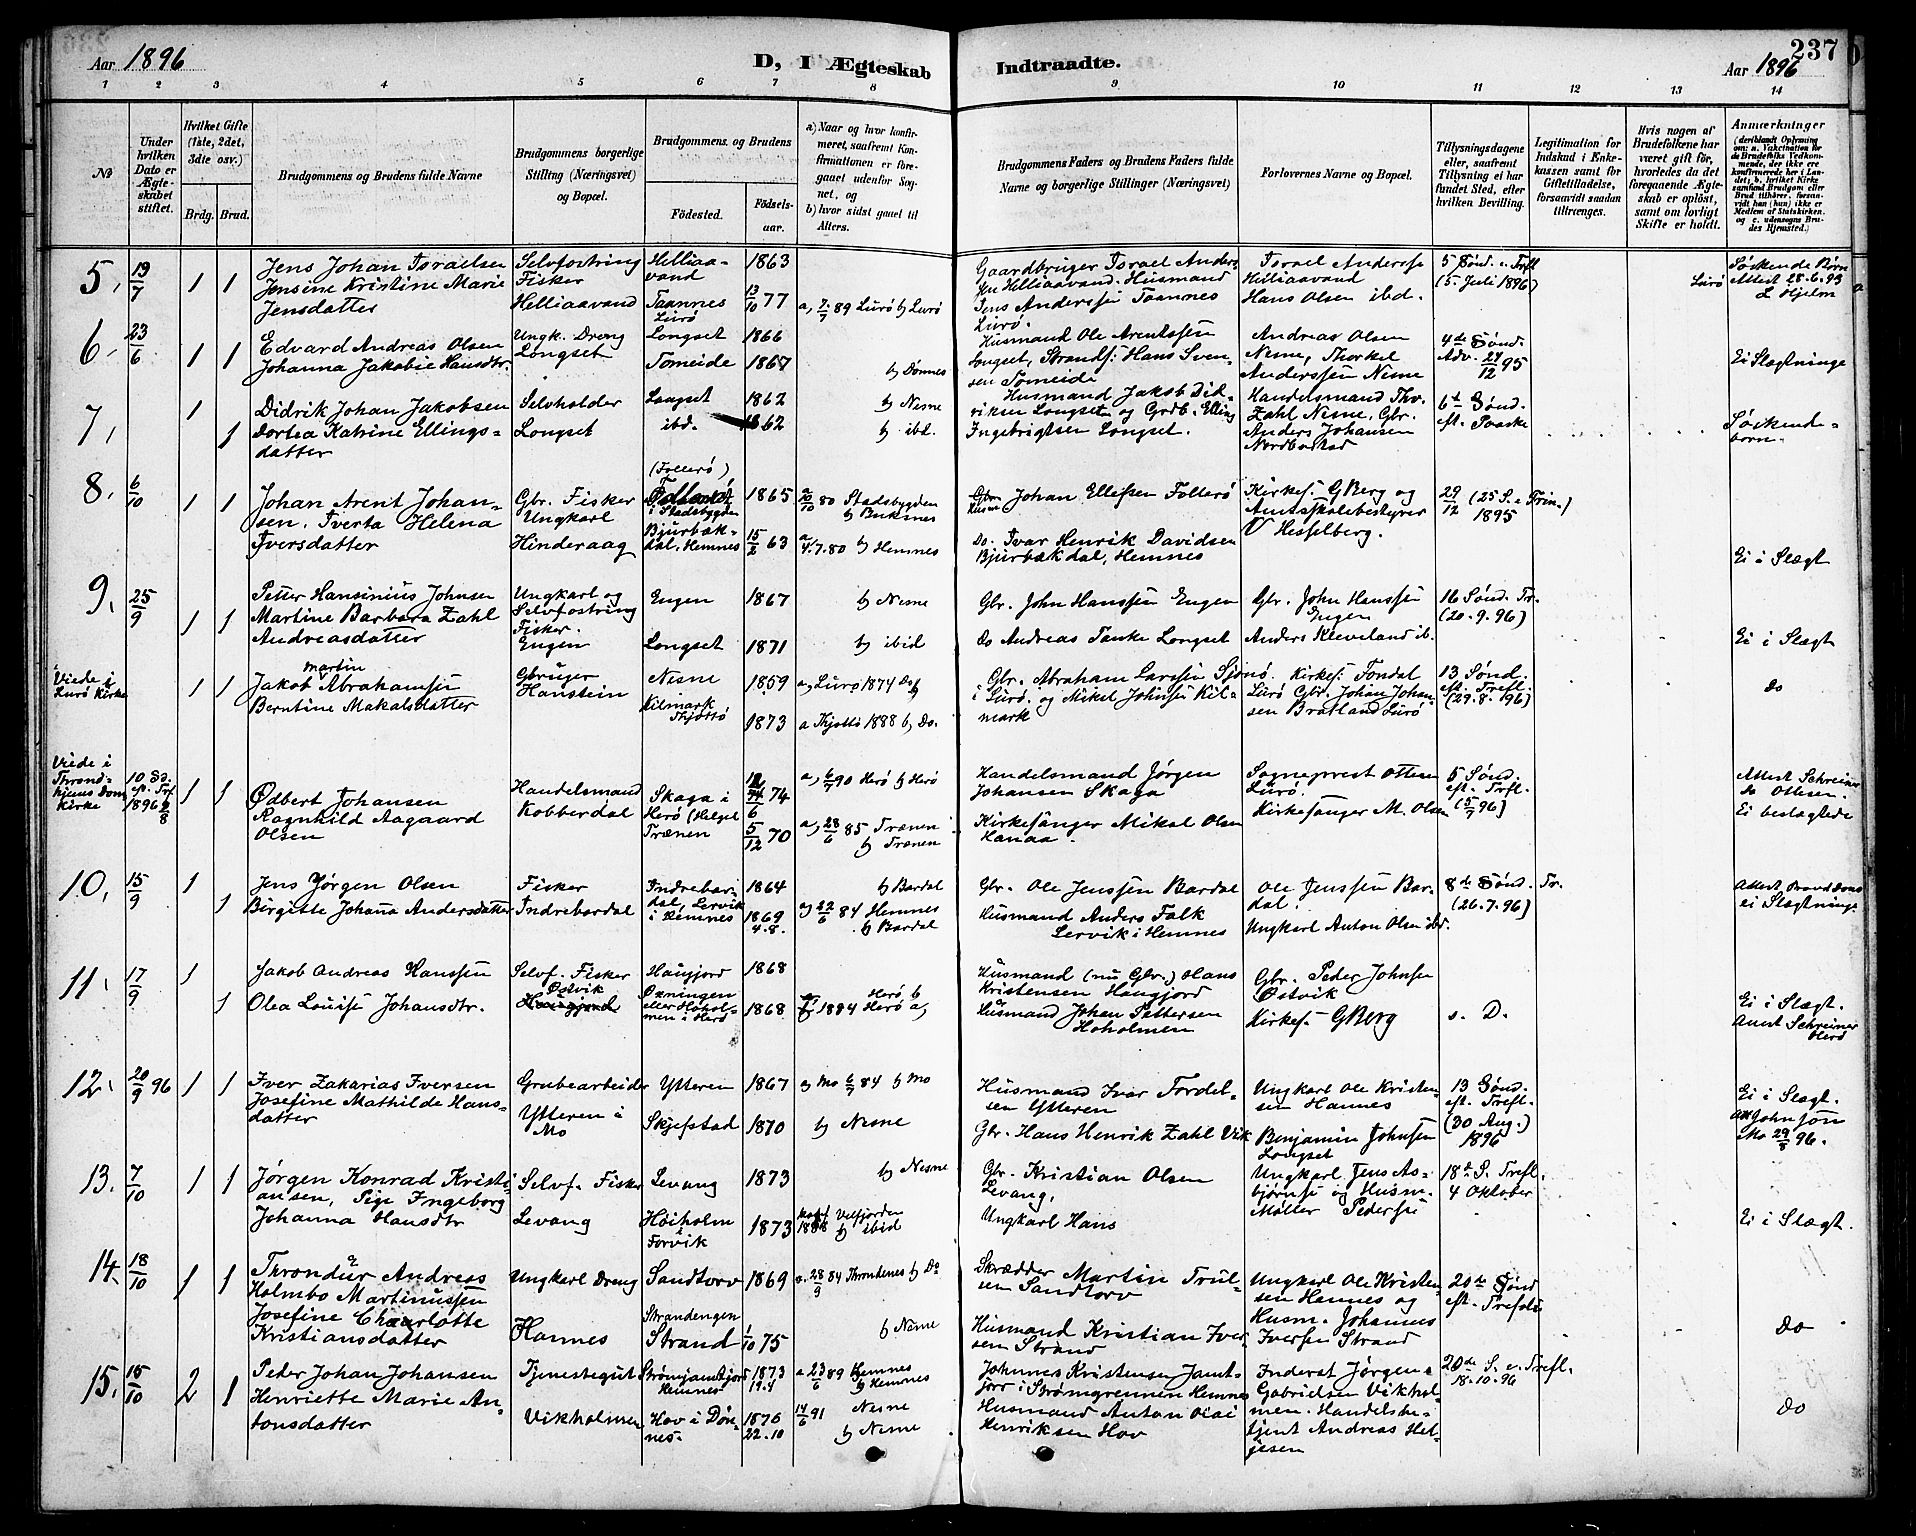 Aar 1896
D, I Ægteskab Indtraadte.
237
Aar 1896
1 2 3 4 5 6 7 8 9 10 11 12 13 14
No
Under hvilken Dato er Ægteskabet stiftet.
Hvilket Gifte (1ste, 2det, 3die osv.)
Brdg. Brud.
Brudgommens og Brudens fulde Navne
Brudgommens borgerlige Stilling (Næringsvei) og Bopæl.
Brudgommens og Brudens
Fødested.
Fødselsaar.
a) Naar og hvor konfirmeret, saafremt Konfirmationen er foregaaet udenfor Sognet, og
b) hvor sidst gaaet til Alters.
Brudgommens Faders og Brudens Faders fulde Navne og borgerlige Stillinger (Næringsvei)
Forlovernes Navne og Bopæl.
Tillysningsdagene eller, saafremt Tillysning ei har fundet Sted, efter hvilken Bevilling.
Legitimation for Indskud i Enkekassen samt for Giftetilladelse, forsaavidt saadan tiltrænges.
Hvis nogen af Brudefolkene har været gift før, hvorledes da det foregaaende Ægteskab er opløst, samt om lovligt Skifte er holdt.
Anmærkninger
5, 19/7 1 1
Jens Johan Israelsen
Jensine Kristine Marie
Jensdatter
Selvfostring
Fisker
Helliaavand
Helliaavand
Taannes
Lurø
1863
13/10 77
a, 2/7 89 Lurø b, Lurø
Gaardbruger Israel Andersen Helliaavand. Husmand
Jens Anderssen Taannes
Lurø.
Israel Anderssen
Helliaavand
Hans Olsen ibd.
5 Sønd. e. Trefl
(5. Juli 1896)
Lurø
Søskende Børn
Attest 28.6.93
L Hjelm
6, 23/6 1 1
Edvard Andreas Olsen
Johanna Jakobie Hansdtr.
Ungk. Dreng
Longset
Longset
Tomeide
1866
1867
b, Dønnes
Husmand Ole Arentssen
Longset, Strands: Hans Svensen Tomeide
Andreas Olsen
Nesne, Thorkel
Anderssen Nesne
4de Sønd.
Adv. 24/12 95
Ei Slægtninge
7, 1 1
Didrik Johan Jakobsen
Dortea Katrine Ellingsdatter
Selvholder
Longset
Longset
ibd.
1862
1862
b, Nesne
b, ibd.
Husmand Jakob Didriksen Longset og Grdb. Elling
Ingebrigtsen Longset.
Handelsmand Thr.
Zahl Nesne, Gbr.
Anders Johansen
6te Sønd.
eft. Paaske
Søskendebørn.
8, 6/10 1 1
Johan Arent Johansen, Iverta Helena
Iversdatter
Gbr. Fisker
Ungkarl
Hinderaag
(Follerø)
i Stadsbygden
Bjurbækdal, Hemnes
1865
15/2 63
80 Stadsbygden
b, Buksnes
4/7.80 b, Hemnes
Johan Ellefsen Follerø
Do. Ivar Henrik Davidsen
Bjurbækdal, Hemnes
Kirkes. G Berg og
Amtsskolebestyrer
V Hesselberg.
29/12 (25 S. e Trin.)
1895
Ei i Slægt
9, 25/9 1 1
Petter Hansinius Johnsen
Martine Barbara Zahl
Andreasdatter
Ungkarl og
Selvfostring
Fisker.
Engen
Engen
Longset
1867
1871
b, Nesne
b, ibid
Gbr. John Hanssen Engen
Do Andreas Tanke Longset
Gbr. John Hanssen
Engen
Anders Kleveland ib.
16 Sønd. Tr.
(20.9.96)
Ei i Slægt
Viede i
Lurø Kirke
1 1
Jakob Martin Abrahamsen
Berntine Makalsdatter
Gbruger
Hanstein
Nesne
Kilmark
Thjøttø
1859
1873
a, Lurø 1874 Do b
a Thjøttø 1888 b, Do.
Gbr. Abraham Larssen Sjonø.
i Lurø. og Mikel Johnsen Kilmark
Kirkes: Tondal
Lurø Gbr. Johan Johansen Bratland Lurø
13 Sønd.
eft. Trefl.
(29.8.96)
Do
Viede i
Throndhjems Dom
Kirke
10 Sd.
eft. Tref
1896 9/8
1 1
Ødbert Johansen
Ragnhild Aagaard
Olsen
Handelsmand
Kobberdal
Skaga i
Herø (Helgel
Trænen
74
6
5/12 70
a, 6/7 90 Herø b, Herø
a, 28/6 85 Trænen
b, Trænen
Handelsmand Jørgen
Johansen Skaga
Kirkesanger Mikal Olsen
Hanaa.
Sogneprest Ottesen
Lurø.
Kirkesanger M. Olsen
5 Sønd.
eft. Trefl.
(5/7 96)
Attest Schreiner
Do Ottesen.
Ei beslægtede
10, 15/9 1 1
Jens Jørgen Olsen
Birgitte Johana Andersdatter
Fisker
Indrebardal
Indrebardal, Lervik
i Hemnes
1864
1869
4.8.
b, Bardal
a, 22/6 84 Hemnes
b, Bardal
Gbr. Ole Jenssen Bardal
Husmand Anders Falk
Lervik i Hemnes
Ole Jenssen Bardal.
Ungkarl Anton Olsen ibd.
8de Sønd. Tr.
(26.7.96)
ei Slægtninge
11, 17/9 1 1
Jakob Andreas Hanssen
Olea Louise Johansdtr.
Selvf. Fisker
Østvik
Haugjord
Haugjord
Øxningen
eller Høholmen i Herø
1868
1868
1884 Herø a, Herø b
Husmand (nu Gbr.) Hans
Kristensen Haugjord
Husmand Johan Pettersen
Høholmen
Gbr. Peder Johnsen
Østvik
Kirkes. G Berg
s. D.
Ei i Slægt.
Attest Schreiner
Herø
12. 20/9 96 1 1
Iver Zakarias Iversen
Josefine Mathilde Hansdatter
Grubearbeider
Ytteren i
Mo
Ytteren
Skjefstad
1867
1870
a, Mo 6/7 84 b, Mo
b, Nesne
Husmand Ivar Tordelsen Ytteren
Gbr. Hans Henrik Zahl Vik
Ungkarl Ole Kristensen Hannes
Benjamin Johnsen
Longset
13 Sønd.
eft. Trefl.
(30 Aug.)
1896
Ei i Slægt.
Att John Jon
i Mo 29/8 96.
13. 7/10 1 1
Jørgen Konrad Kristiansen, Pige Ingeborg
Johanna Hansdtr
Selvf. Fisker
Levang
Levang
Høiholm
i Forvik
1873
1873
b, Nesne
konf Velfjorden
1888 b, ibid
Gbr. Kristian Olsen
Levang,
Ungkarl Hans
Ungkarl Jens Asbjørnsen og Husm.
Møller Pedersen
18de S. Trefl.
4 Oktober
Ei i Slægt.
14. 18/10 1 1
Throndur Andreas
Holmbo Martinussen
Josefine Charlotte
Kristiansdatter
Ungkarl Dreng
Hannes
Sandtorv
Strandengen
Strand
1869
1/10 75
a. 28/9 84 Throndenes b, Do
b, Nesne
Skrædder Martin Trulsen Sandtorv
Husmand Kristian Iversen Strand
Ungkarl Ole Kristensen Hannes og
Husm. Johannes
Iversen Strand
20de Sønd
eft. Trefold
Do
15. 15/10 2 1
Peder Johan Johansen
Henriette Marie Antonsdatter
Tjenestegut
Vikholmen
Strømjamtjord
Hemnes
Hov i Dønnes.
1873
19.1
1876
22.10
a 23/6 89 Hemnes
b, Hemnes
14/6 91 Nesne
b, Nesne
Johannes Kristensen Jamtjord i Strømgrennen Hemnes
Husmand Anton Olai
Henriksen Hov
Inderst Jørgen
Gabrielsen Vikholmen. Handelsbetjent Andreas Heljesen
20de S. e. Trefl.
18.10.96
Do